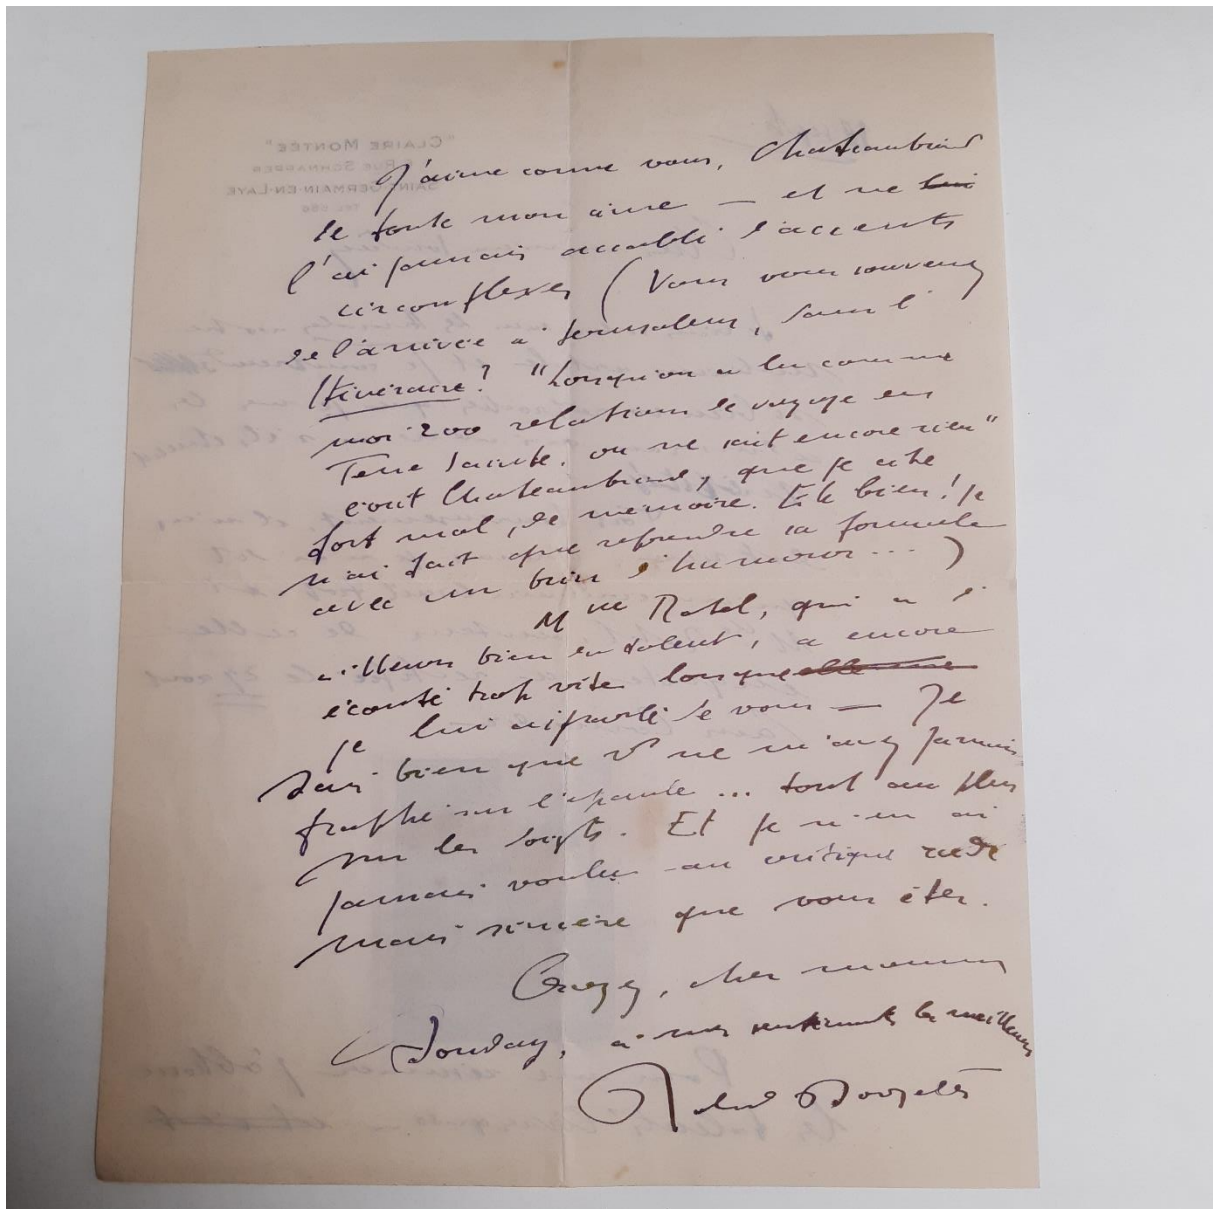 "CLAIRE MONTÉE"
RUE SCHNAPPER
SAINT-GERMAIN-EN-LAYE
J'aime comme vous, Chateaubriand
de toute mon âme — et ne lui
l'ai jamais accablé d'accents
circonflexes (Vous vous souvenez
de l'arrivée à Jérusalem, dans l'
Itinéraire? "Lorsqu'on a lu comme
moi 200 relations de voyage en
Terre Sainte, on ne sait encore rien"
écrit Chateaubriand, que je cite
fort mal, de mémoire. Eh bien! je
n'ai fait que reprendre sa formule
avec un brin d'humour...)
Mme Ratel, qui a d'
ailleurs bien du talent, a encore
écouté trop vite lorsque elle me
je lui ai parlé de vous — Je
sais bien que vs ne m'avez jamais
frappé sur l'épaule ... tout au plus
sur les doigts. Et je n'en ai
jamais voulu au critique rude
mais sincère que vous êtes.
Croyez, cher monsieur
Souday, à mes sentiments les meilleurs
Roland Dorgelès